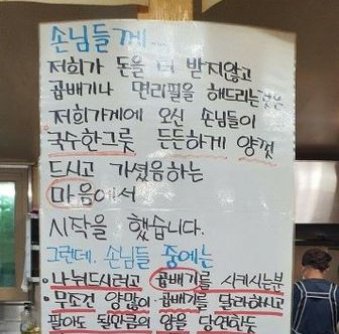 손님들께...
저희가 돈을 더 받지않고
곱배기나 면리필을 해드리는것은
저희가게에 오신 손님들이
국수한그릇 든든하게 양껏
드시고 가셨음하는
마음에서
시작을 했습니다.
그런데, 손님들 중에는
·나눠드시려고 곱배기를 시키시는분
·무조건 양많이 곱배기를 달라하시고
팔아도 될만큼의 양을 당연한듯